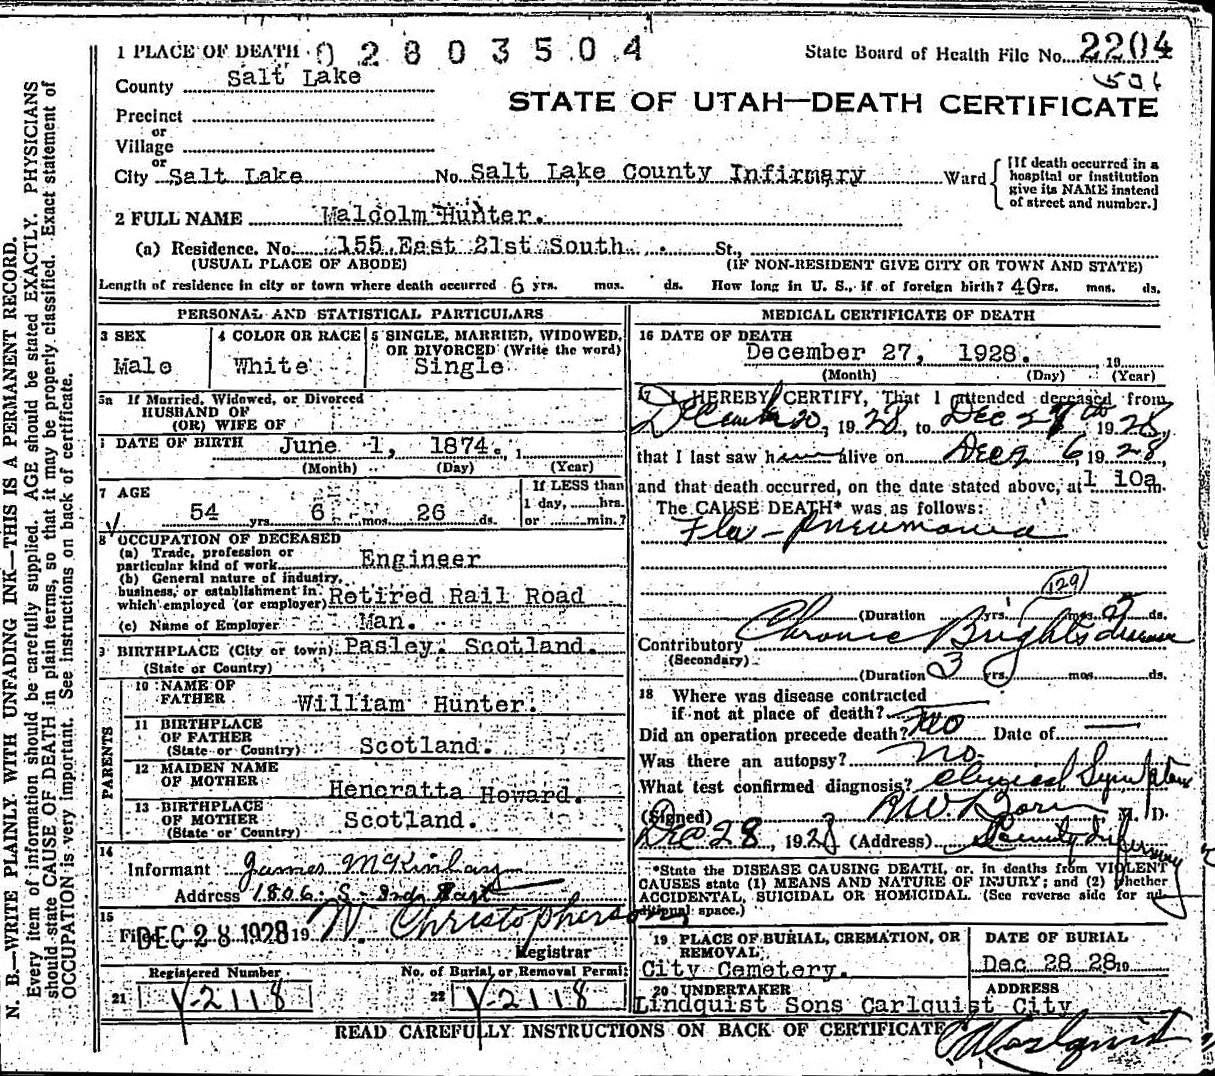 1 PLACE OF DEATH 02803504 State Board of Health File No. 2204
County Salt Lake
STATE OF UTAH—DEATH CERTIFICATE
Precinct
or
Village
or
City Salt Lake No. Salt Lake County Infirmary Ward
[If death occurred in a
hospital or institution
give its NAME instead
of street and number.]
2 FULL NAME Malcolm Hunter.
(a) Residence. No. 155 East 21st South St.,
(USUAL PLACE OF ABODE) (IF NON-RESIDENT GIVE CITY OR TOWN AND STATE)
Length of residence in city or town where death occurred 6 yrs. mos. ds. How long in U. S., if of foreign birth? 40rs. mos. ds.
PERSONAL AND STATISTICAL PARTICULARS
3 SEX 4 COLOR OR RACE 5 SINGLE, MARRIED, WIDOWED,
OR DIVORCED (Write the word)
Male White Single
5a If Married, Widowed, or Divorced
HUSBAND OF
(OR) WIFE OF
DATE OF BIRTH June 1, 1874. , 1
(Month) (Day) (Year)
7 AGE If LESS than
1 day, hrs.
54 yrs. 6 mos. 26 ds. or min.?
8 OCCUPATION OF DECEASED
(a) Trade, profession or
particular kind of work Engineer
(b) General nature of industry,
business, or establishment in
which employed (or employer) Retired Rail Road
(c) Name of Employer Man.
9 BIRTHPLACE (City or town) Pasley. Scotland.
(State or Country)
PARENTS
10 NAME OF
FATHER William Hunter.
11 BIRTHPLACE
OF FATHER
(State or Country) Scotland.
12 MAIDEN NAME
OF MOTHER Hencratta Howard.
13 BIRTHPLACE
OF MOTHER
(State or Country) Scotland.
14
Informant James McKinlay
Address 1806 S. 2nd East
15
Fi DEC 28 1928 19 W. Christopherson,
Registrar
Registered Number No. of Burial or Removal Permit
21 V-2118 22 V-2118
MEDICAL CERTIFICATE OF DEATH
16 DATE OF DEATH
December 27, 1928. 19
(Month) (Day) (Year)
17 I HEREBY CERTIFY, That I attended deceased from
December 20, 1928, to Dec 27th 1928,
that I last saw him alive on Dec 26, 1928,
and that death occurred, on the date stated above, at 1 10a m.
The CAUSE DEATH* was as follows:
Flu-Pneumonia
129
(Duration yrs. mos. ds.
Contributory Chronic Brights disease
(Secondary)
(Duration 3 yrs. mos. ds.
18 Where was disease contracted
if not at place of death?
Did an operation precede death? No Date of —
Was there an autopsy? No.
What test confirmed diagnosis? Clinical Symptoms
(Signed) M. D.
Dec 28, 1928 (Address) County Infirmary
*State the DISEASE CAUSING DEATH, or, in deaths from VIOLENT
CAUSES state (1) MEANS AND NATURE OF INJURY; and (2) whether
ACCIDENTAL, SUICIDAL OR HOMICIDAL. (See reverse side for ad-
ditional space.)
19 PLACE OF BURIAL, CREMATION, OR
REMOVAL
City Cemetery.
DATE OF BURIAL
Dec 28 28 19
20 UNDERTAKER ADDRESS
Lindquist Sons Carlquist City
READ CAREFULLY INSTRUCTIONS ON BACK OF CERTIFICATE
N. B.—WRITE PLAINLY WITH UNFADING INK—THIS IS A PERMANENT RECORD.
Every item of information should be carefully supplied. AGE should be stated EXACTLY. PHYSICIANS
should state CAUSE OF DEATH in plain terms, so that it may be properly classified. Exact statement of
OCCUPATION is very important. See instructions on back of certificate.